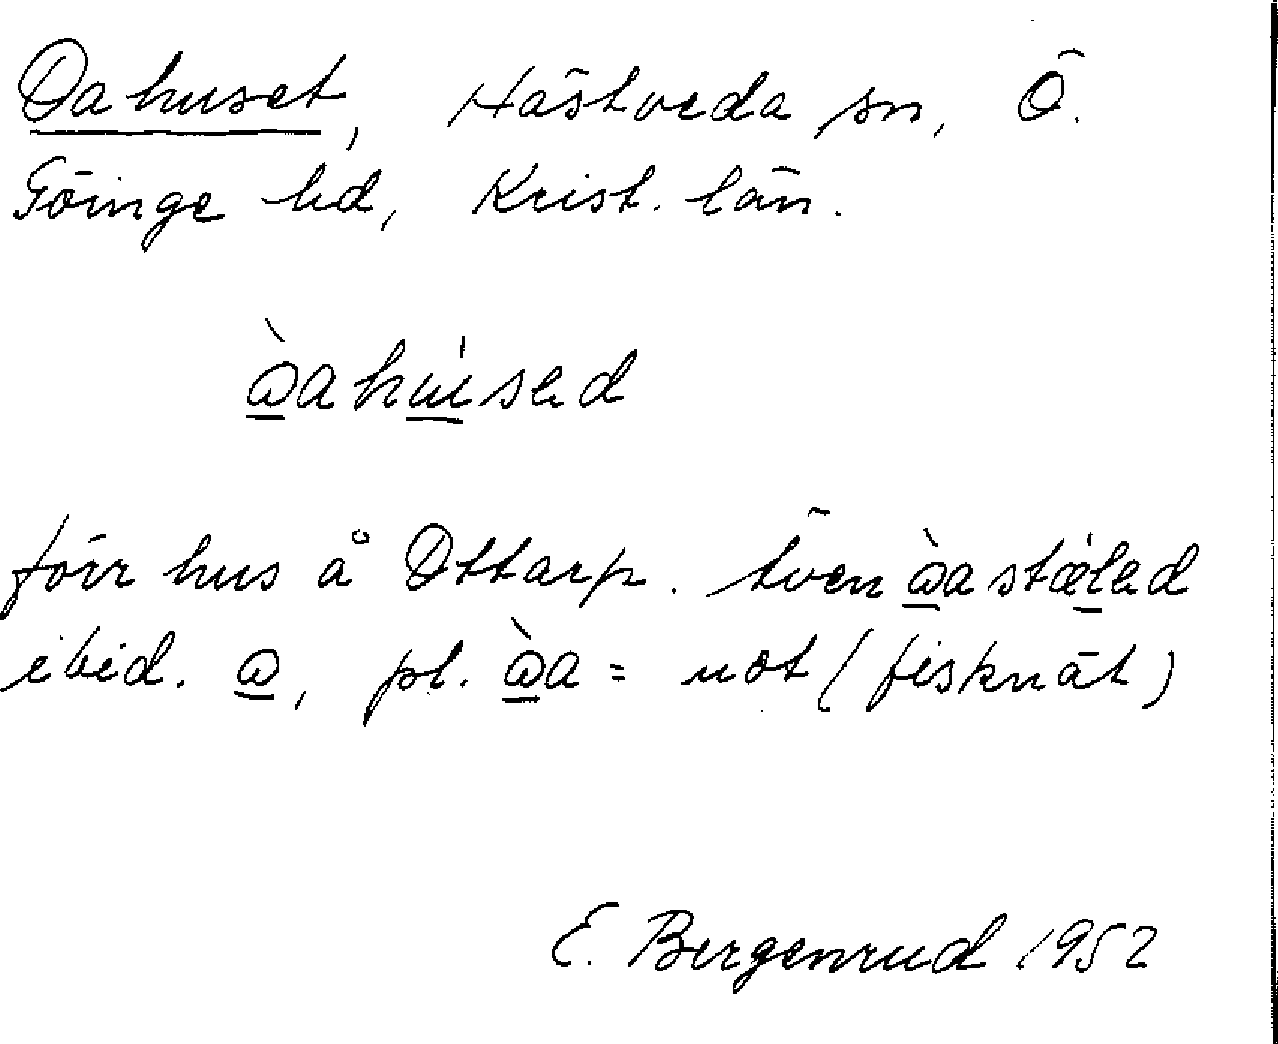 Oahuset, Hästveda sn, Ö.
Göinge hd, Krist. län.
ɷ̀ahúsed
förr hus å Ottarp. Även ɷ̀astǽled
ibid. ɷ, pl. ɷ̀a = not (fisknät)
E. Bergenrud 1952